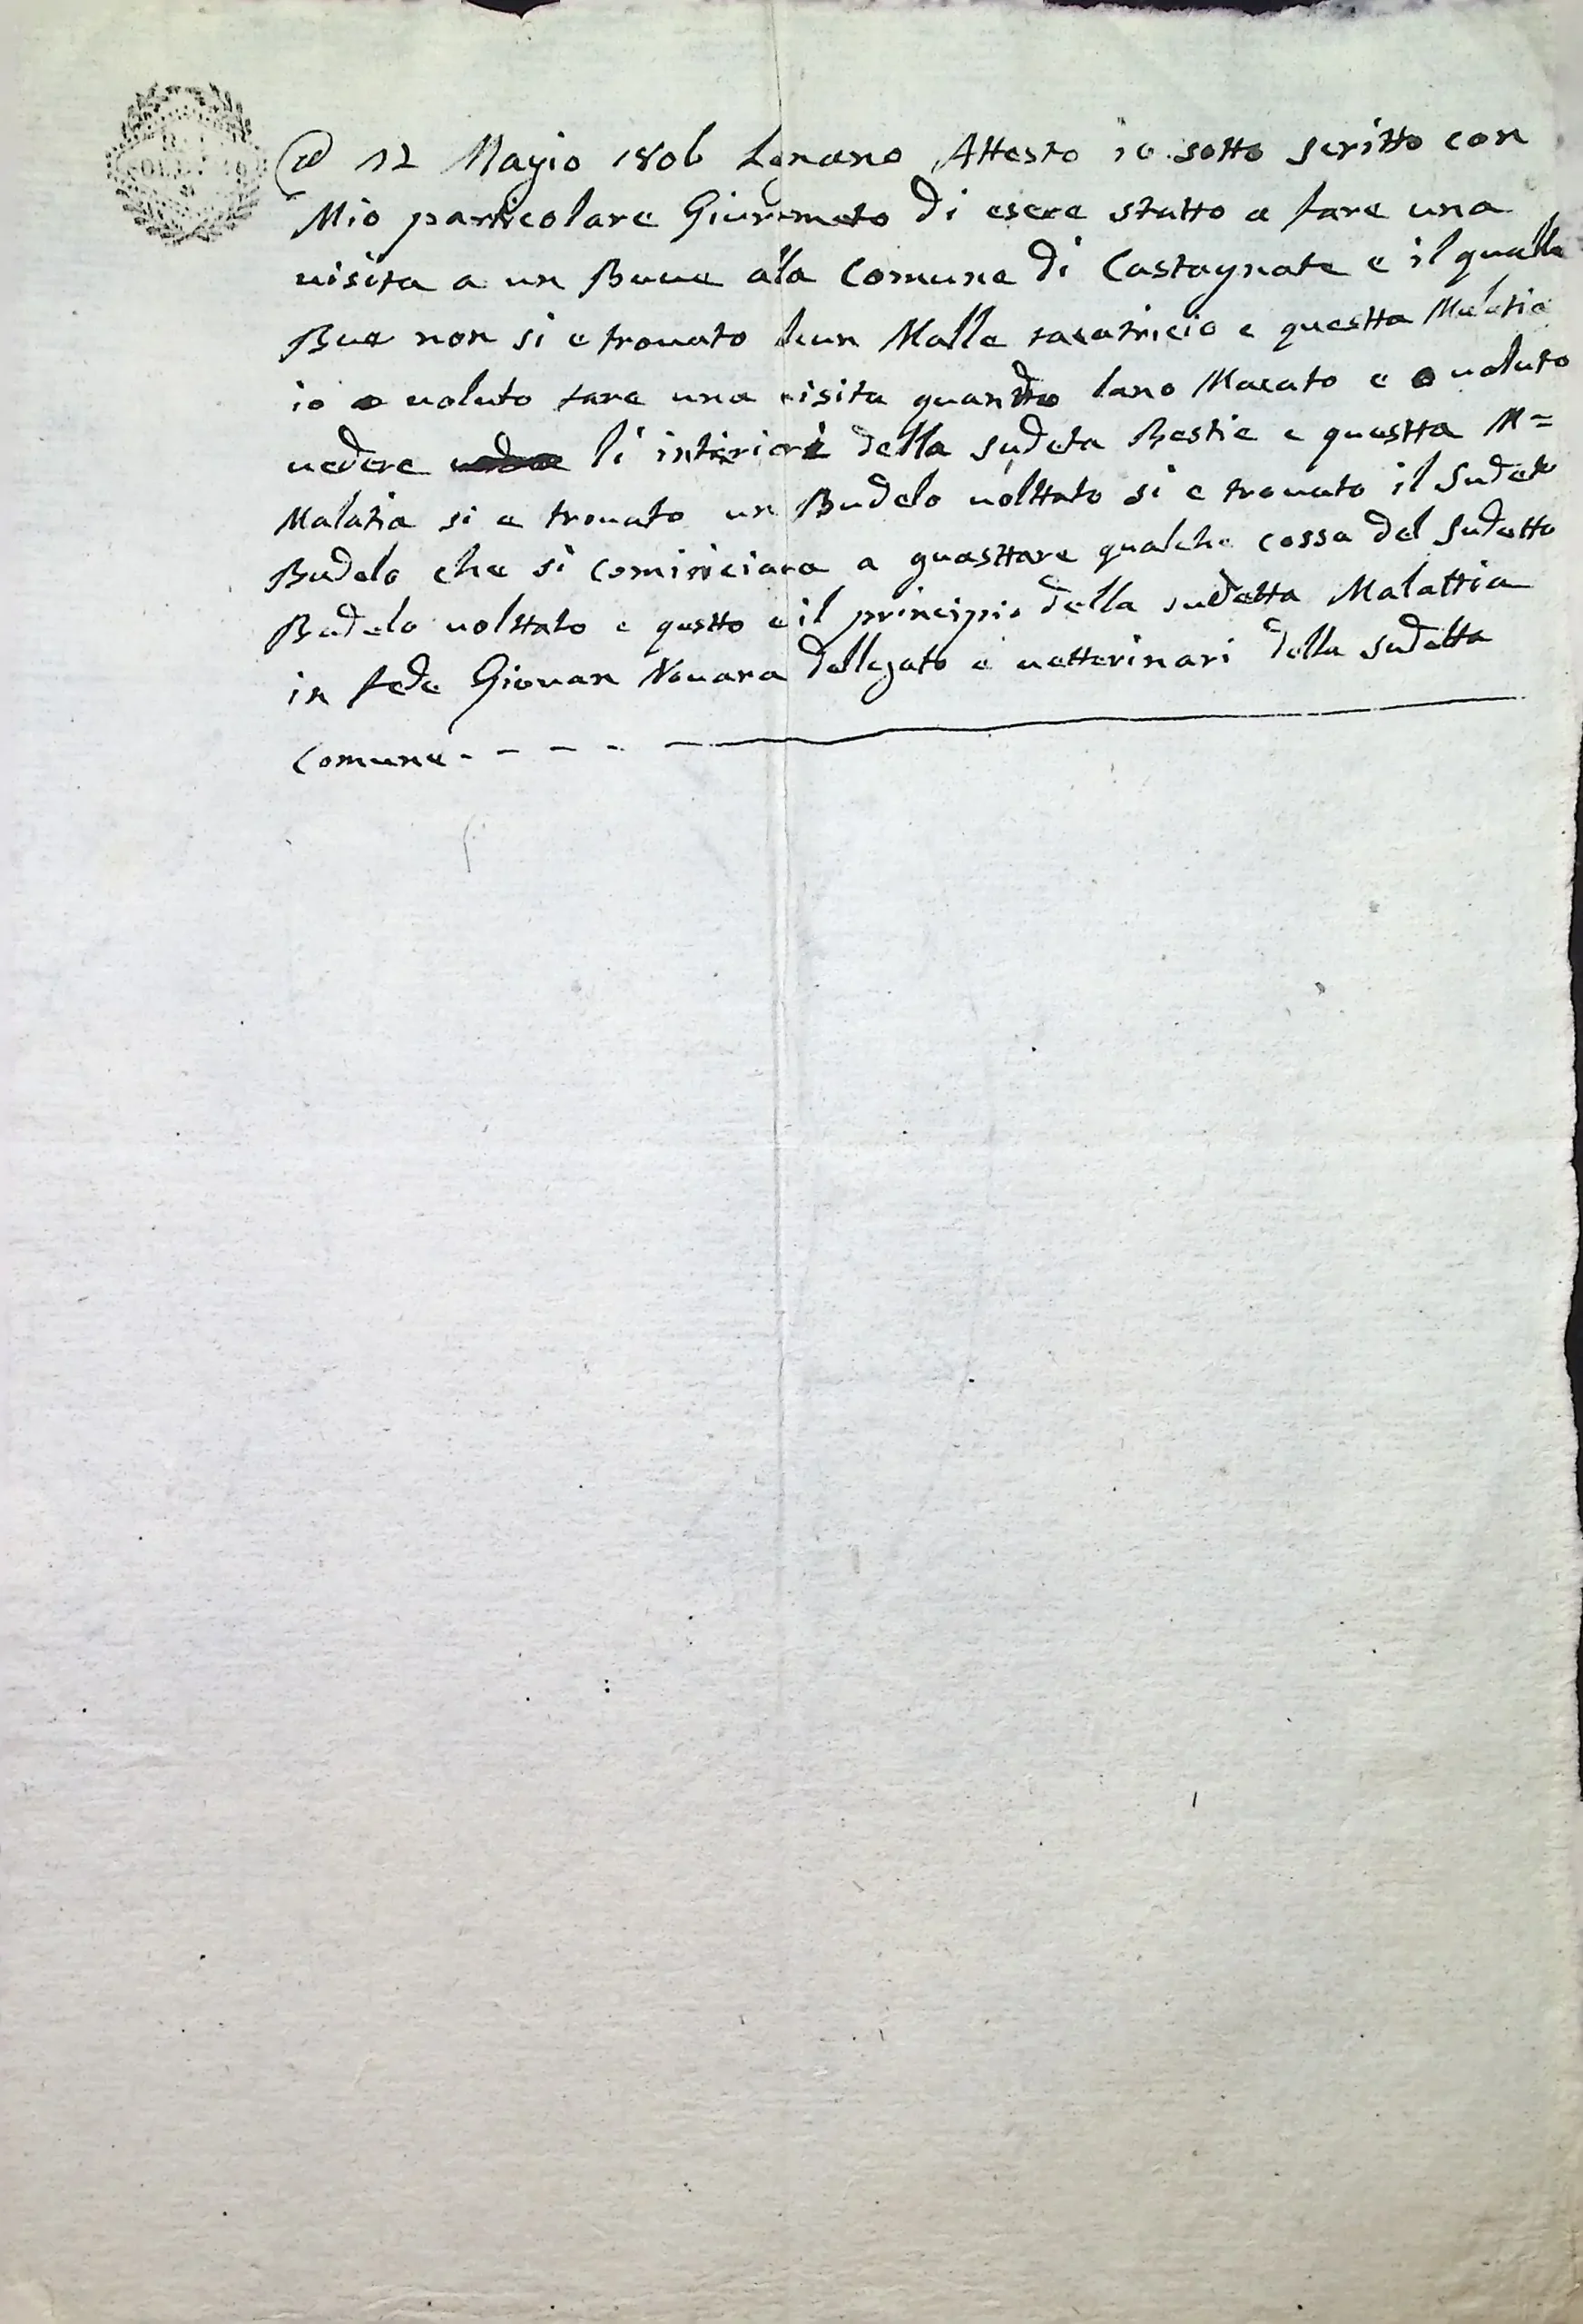 @ 12 Magio 1806 Lenano Attesto io sotto scritto con
Mio particolare Giuremeto di esere statto a fare una
uisita a un Bue ala Comune di Castagnate e il qualle
Bue non si e trouato un Malle tacaticcio e questta Malatia
io o uoluto fare una uisita quando lano Macato e o uoluto
uedere li interiori della sudeta Bestie e questta M=
Malatia si e trouato un Budelo uolttato si e trouato il Sudeto
Budelo che si cominciaua a guasttare qualche cossa del Sudetto
Budelo uolttato e questto e il principio della sudetta Malattia
in fede Giouan Nouara dellegato e uetterinari della sudetta
Comune